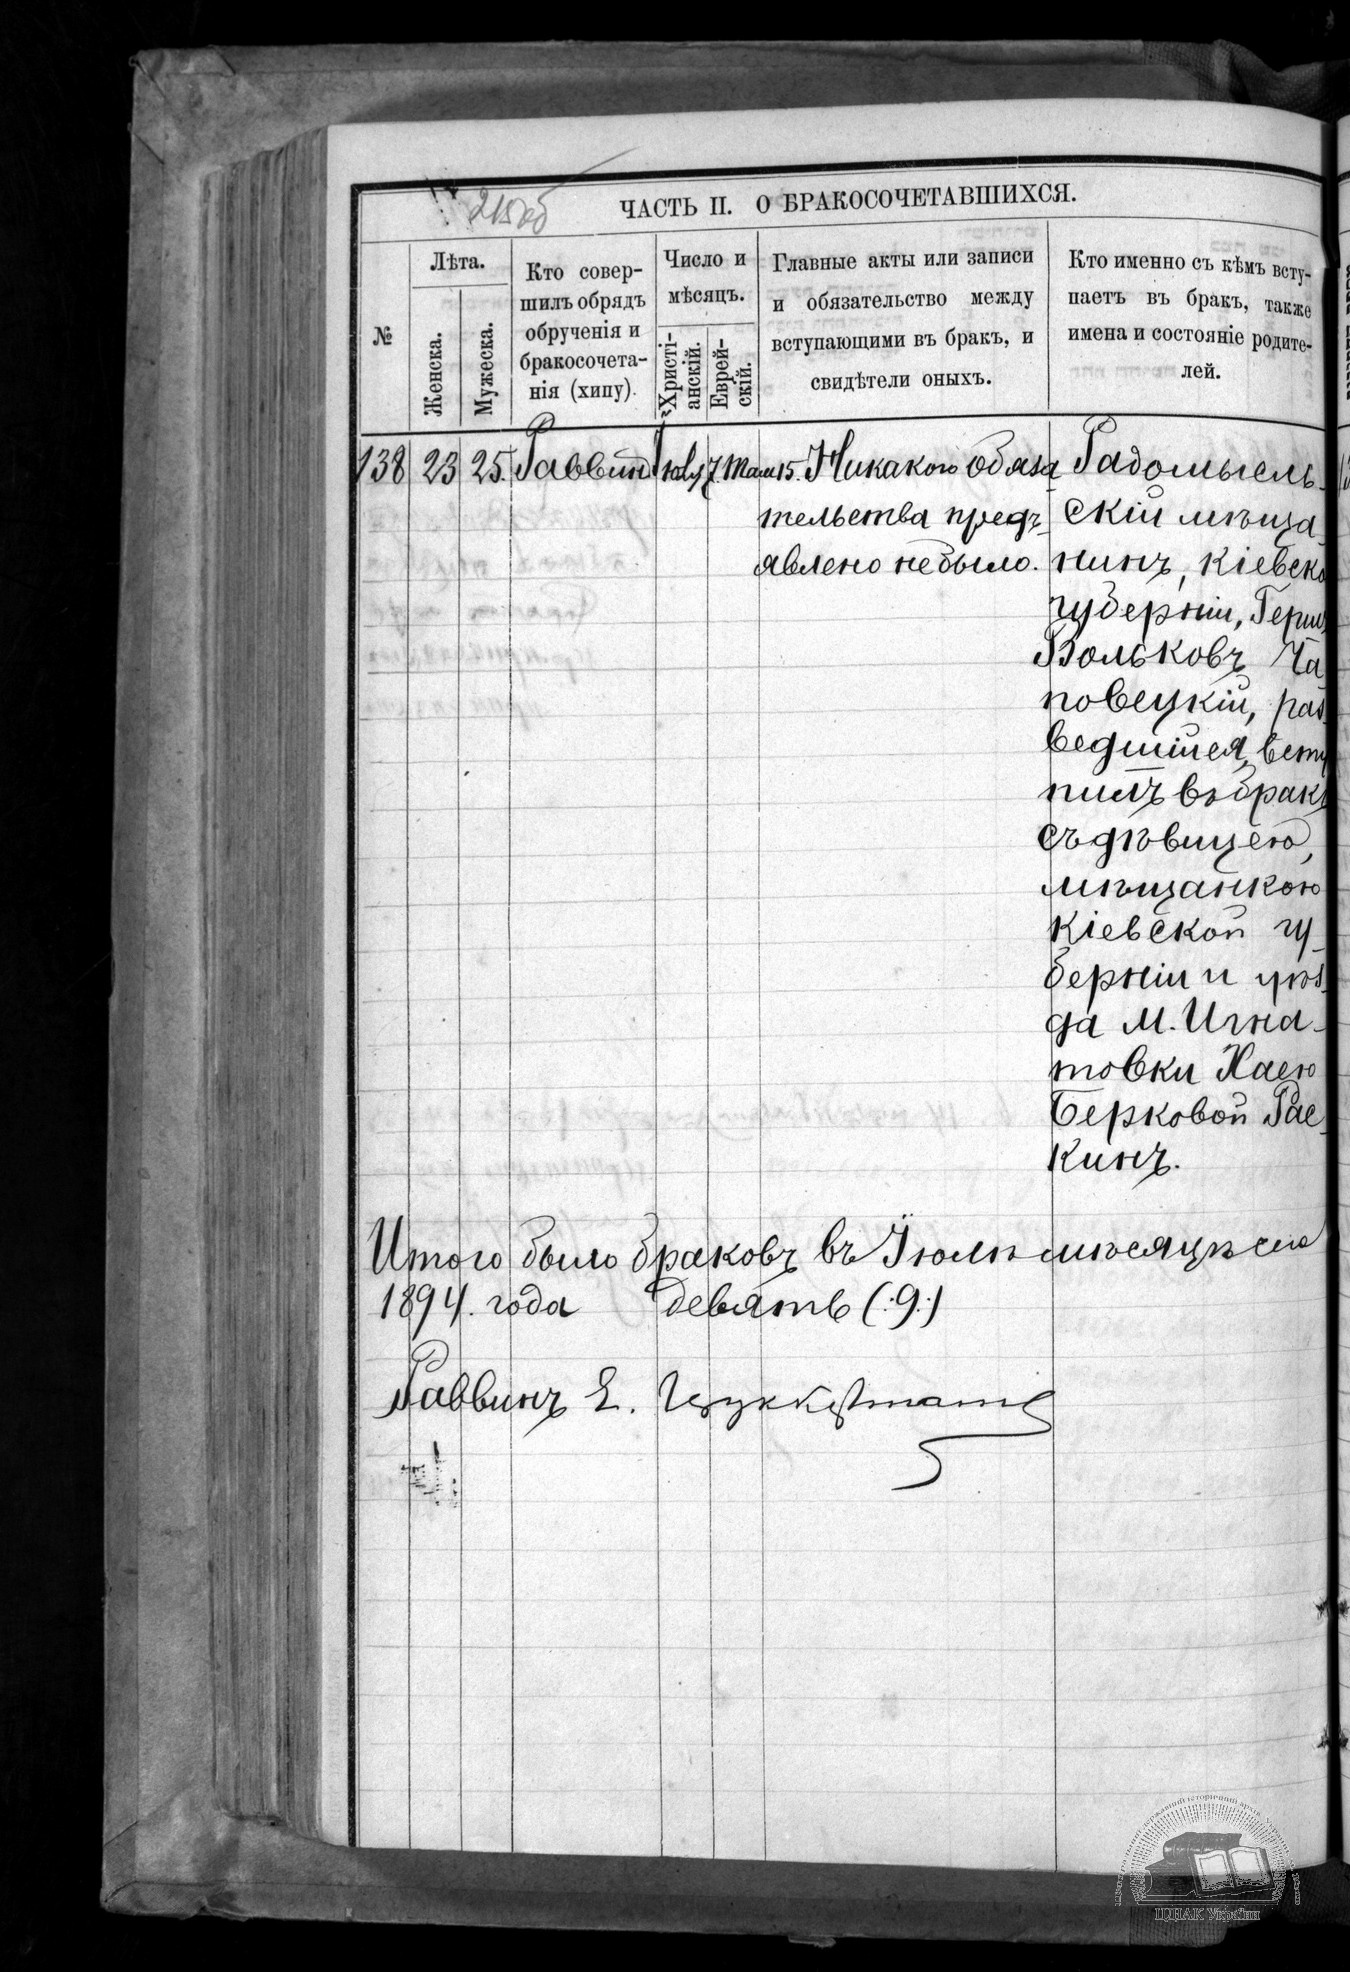 215об
ЧАСТЬ II. О БРАКОСОЧЕТАВШИХСЯ.
№
Лѣта.
Женска.
Мужеска.
Кто совер-
шилъ обрядъ
обрученія и
бракосочета-
нія (хипу).
Число и
мѣсяцъ.
Христі-
анскій.
Еврей-
скій.
Главные акты или записи
и обязательство между
вступающими въ бракъ, и
свидѣтели оныхъ.
Кто именно съ кѣмъ всту-
паетъ въ бракъ, также
имена и состояніе родите-
лей.
138 23 25. Раввинъ Іюля 7. Там 15. Никакого обяза
тельства предъ-
явлено небыло.
Радомысль-
скій мѣща-
нинъ, Кіевско
губерніи, Герш
Вольковъ Ча
повецкій, раз
ведшійся, всту
пилъ въ бракъ
съ дѣвицею,
мѣщанкою
Кіевской гу-
берніи и уѣз-
да м. Игна-
товки Хаею
Берковой Рас-
кинъ.
Итого было браковъ въ Іюлѣ мѣсяцѣ сего
1894. года девять (.9.)
Раввинъ Е. Цуккерманъ
ЦДІАК України